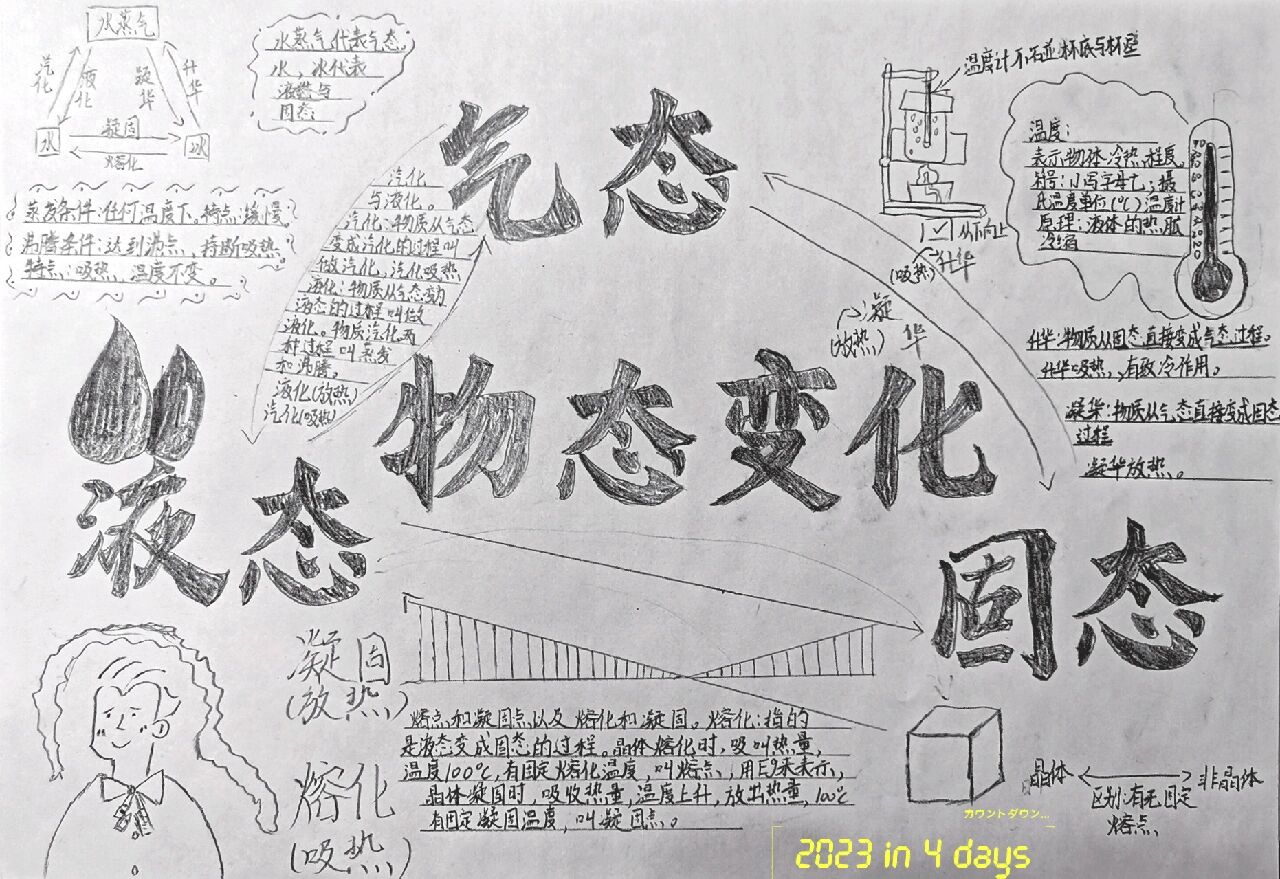 水蒸气
汽化
液化
凝华
升华
水
凝固
熔化
冰
水蒸气代表气态
水,冰代表
液态与
固态
蒸发条件:任何温度下,特点:缓慢
沸腾条件:达到沸点,持断吸热
特点:吸热,温度不变。
气态
汽化
与液化。
汽化:物质从气态
变成汽化的过程叫
做汽化,汽化吸热
液化:物质从气态变为
液态的过程叫做
液化。物质汽化两
种过程叫蒸发
和沸腾。
液化(放热)
汽化(吸热)
温度计不石並杯底与杯壁
从下向上
温度:
表示物体冷热程度
符号:小写字母t;摄
氏温度单位(℃)温度计
原理:液体的热胀
冷缩
升华
(吸热)
凝华
(放热)
升华:物质从固态直接变成气态过程。
升华吸热,有致冷作用。
凝华:物质从气态直接变成固态
过程
凝华放热。
物态变化
液态
固态
凝固
(放热)
熔化
(吸热)
熔点和凝固点以及熔化和凝固。熔化:指的
是液态变成固态的过程。晶体熔化时,吸叫热量,
温度100℃,有固定熔化温度,叫熔点,用
晶体凝固时,吸收热量,温度上升,放出热量,100℃
有固定凝固温度,叫凝固点。
晶体
非晶体
区别:有无固定
熔点
カウントダウン...
2023 in 4 days